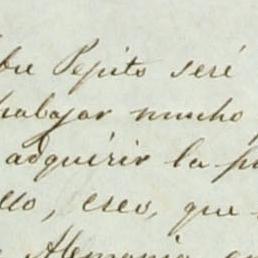 Pepito seré
trabajar mucho
adquirir la
ello, creo, que
Alemania